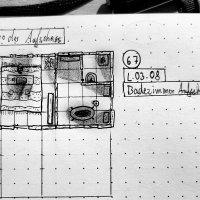 der Aufseher
67
L.03.08
Badezimmer Aufseh